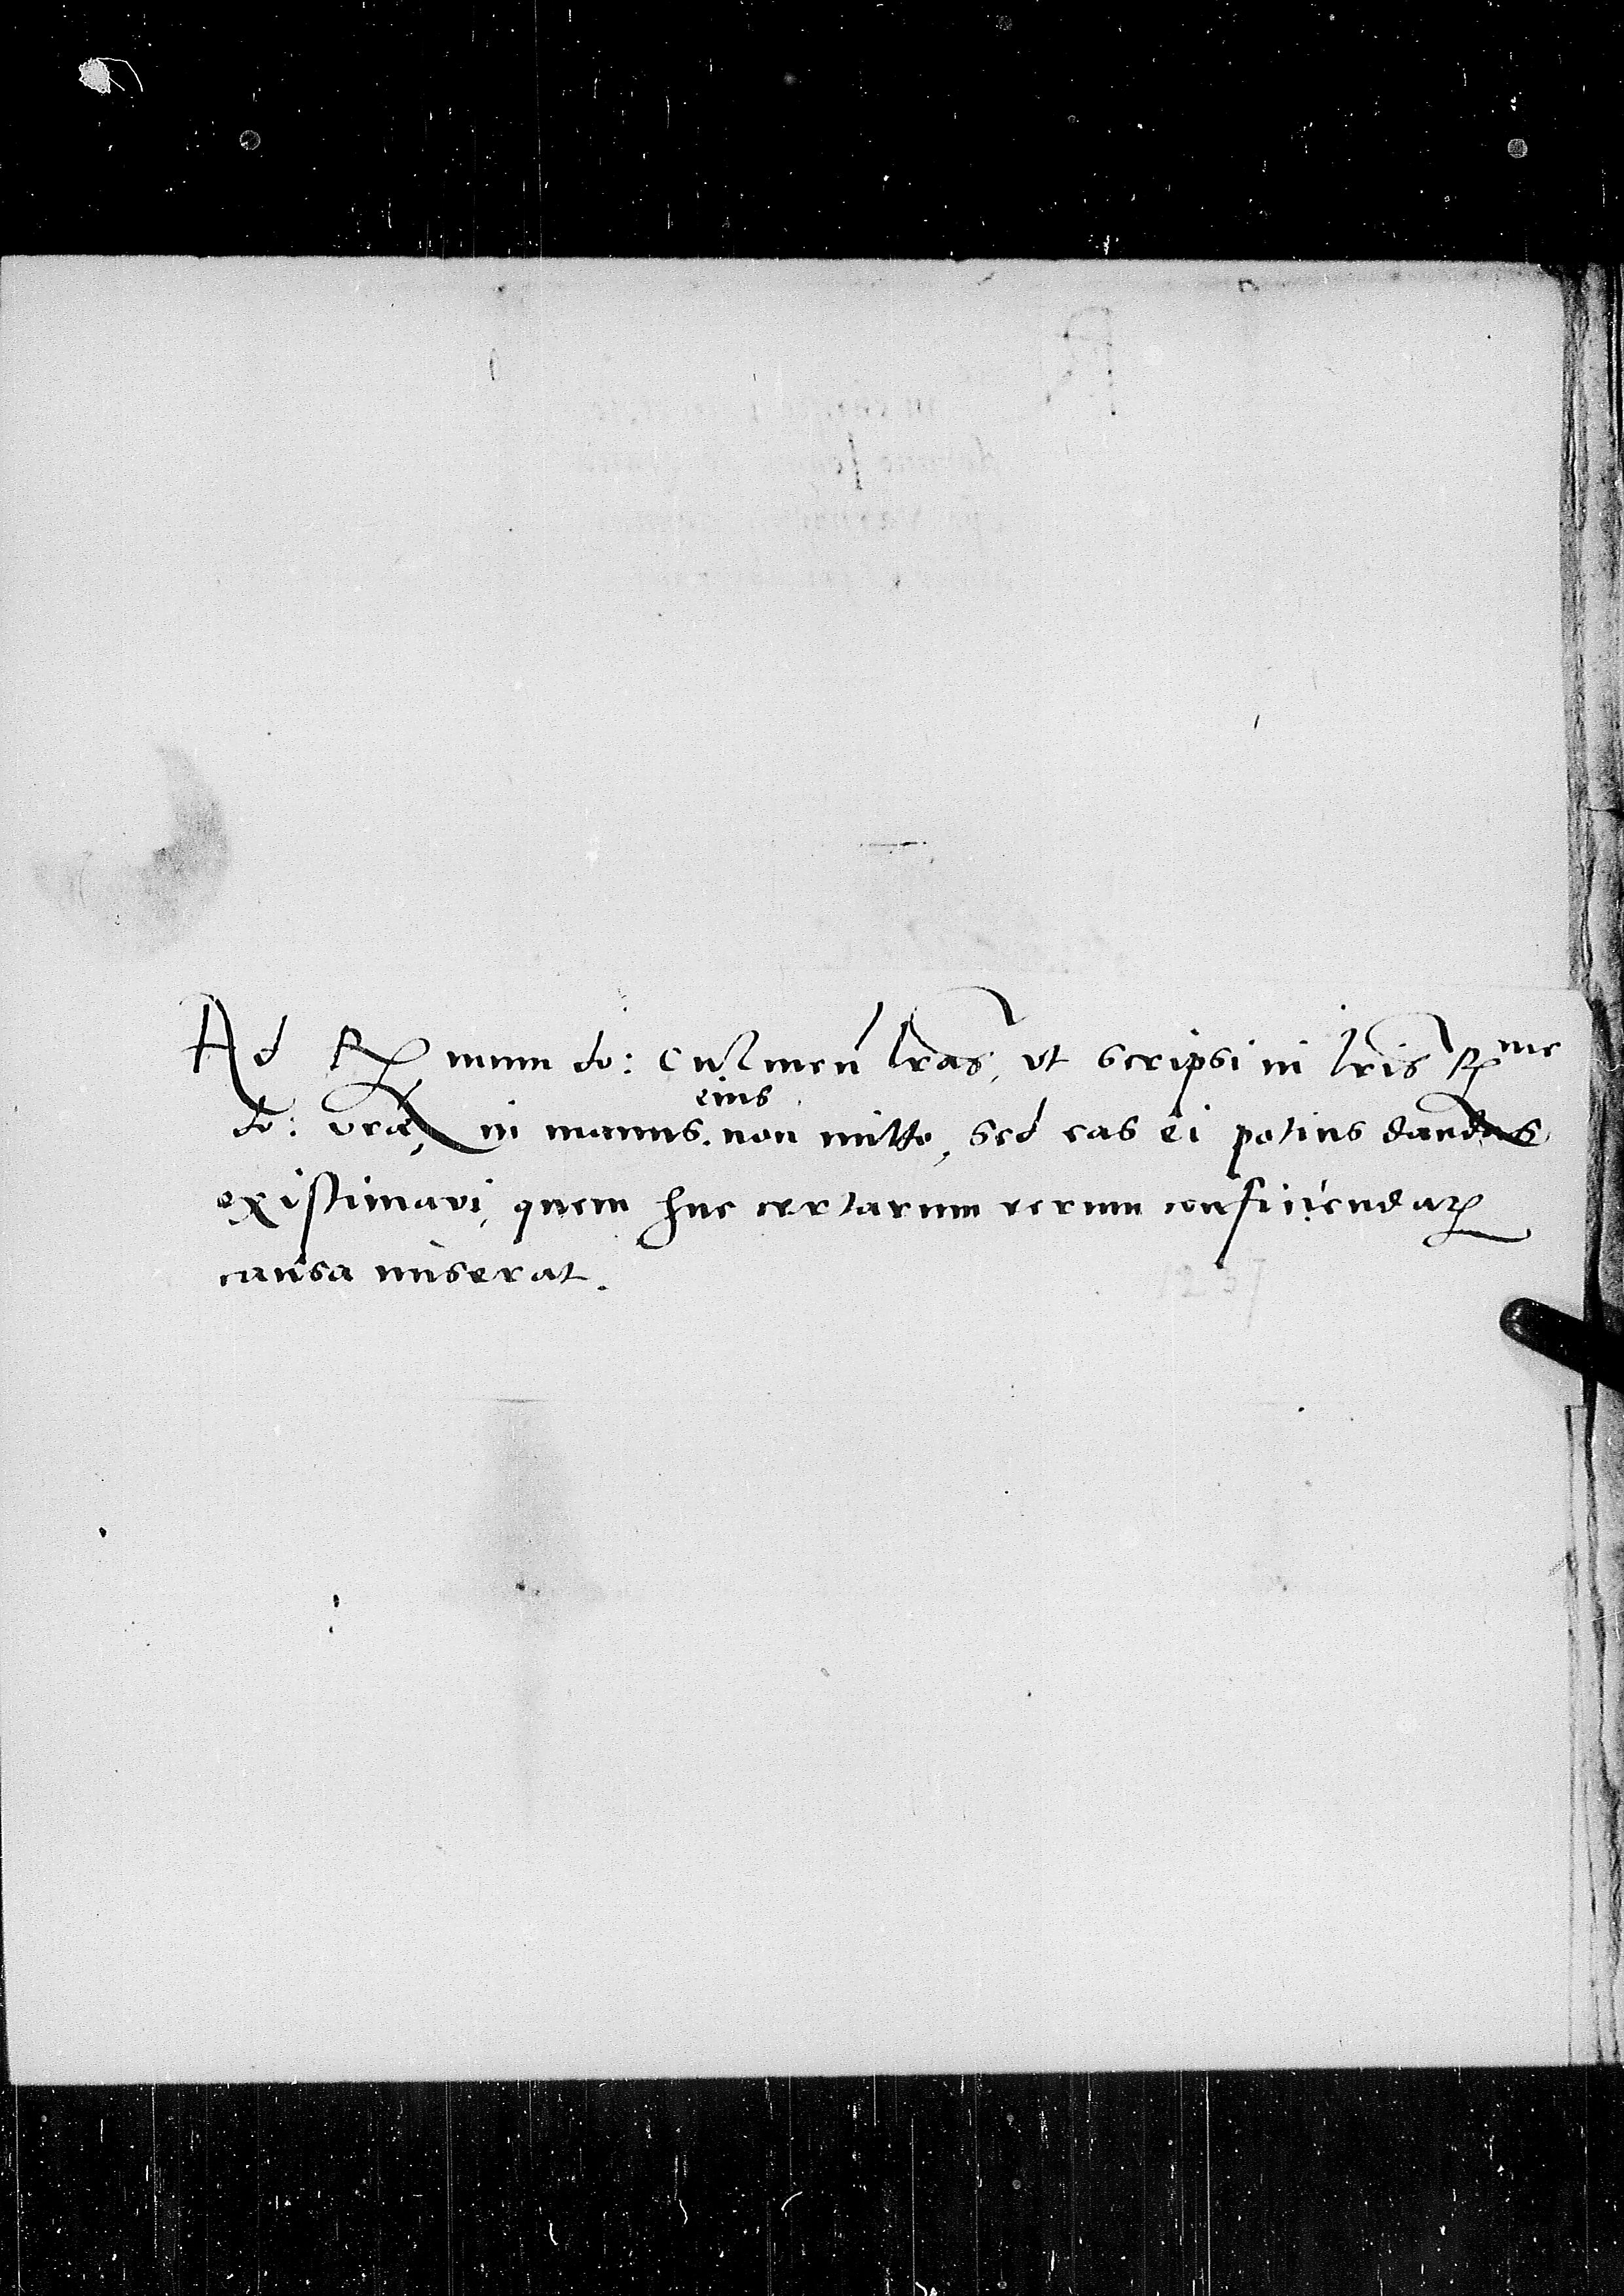 Ad R mum do: Culmen̄ lr̄as, ut scripsi in lr̄is R me
do: vr̄æ, in manus eius non mitto, sed eas ei potius dandas
existimavi, quem huc certarum rerum conficiendaꝝ
causa miserat.